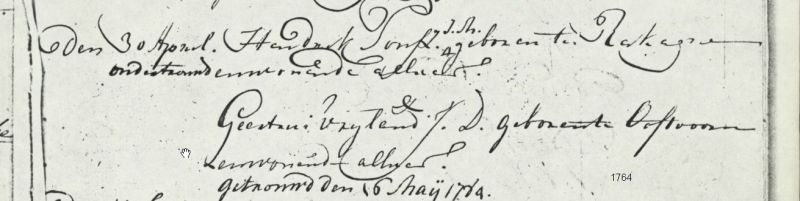 den 30 April. Hendrik J: M: geboren te
ondertrouwd en wonende alhier.
&
Geertrui Vryland J. D. geboren te Oostvoorn
en wonende alhier.
getrouwd den 16 Maÿ 1764.
1764